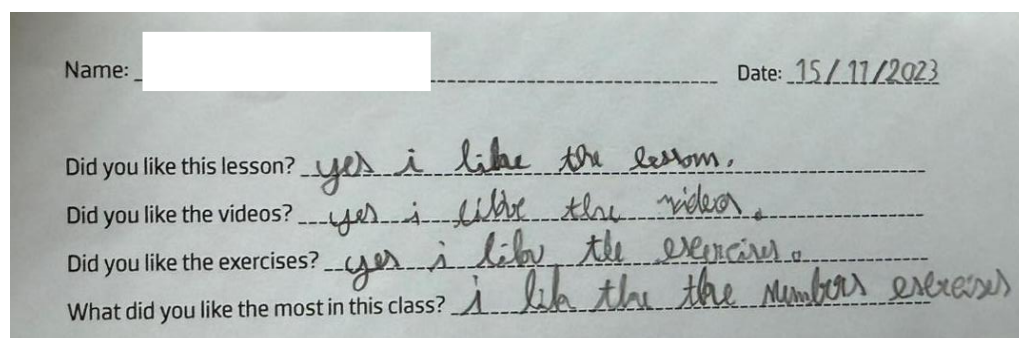 Name: Date: 15/11/2023
Did you like this lesson? yes i like the lessom.
Did you like the videos? yes i like the videos.
Did you like the exercises? yes i like the exercises.
What did you like the most in this class? i like the the numbers exercises